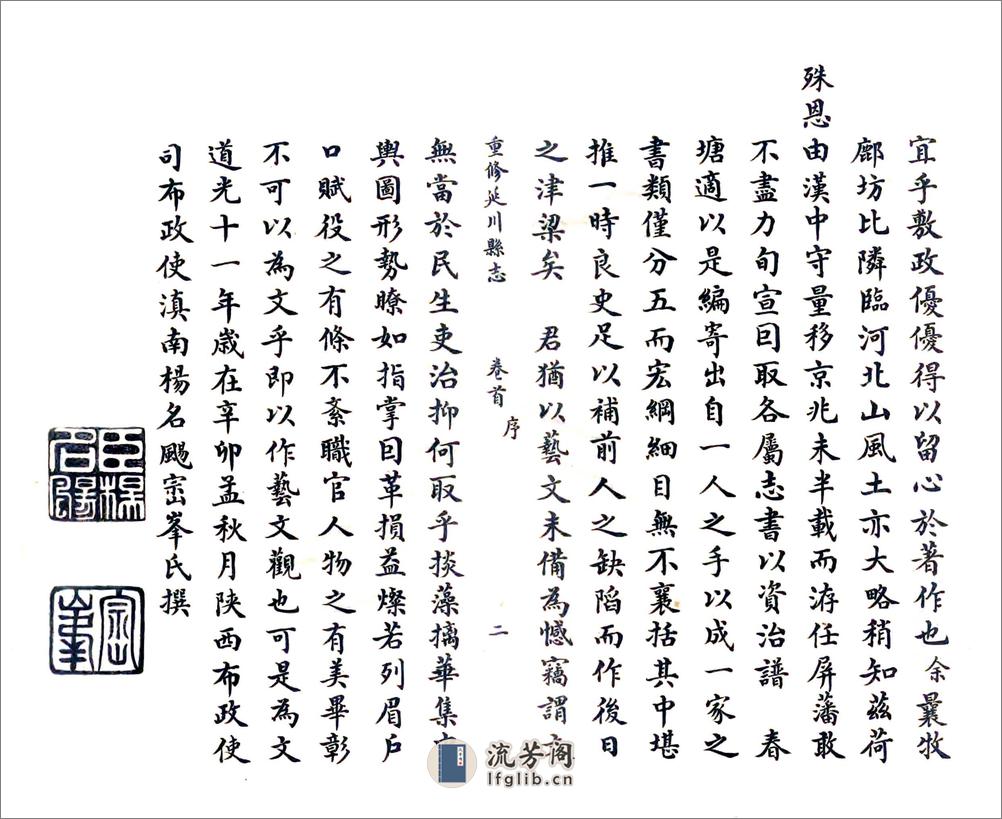 宜乎敷政優優得以留心於著作也余曩牧
鄜坊比隣臨河北山風土亦大略稍知茲荷
殊恩由漢中守量移京兆未半載而洊任屏藩敢
不盡力旬宣因取各屬志書以資治譜 春
塘適以是編寄出自一人之手以成一家之
書類僅分五而宏綱細目無不襄括其中堪
推一時良史足以補前人之缺陷而作後日
之津梁矣 君猶以藝文未備為憾竊謂
重修延川縣志 卷首 序 二
無當於民生吏治抑何取乎掞藻摛華集
輿圖形勢瞭如指掌因革損益燦若列眉戶
口賦役之有條不紊職官人物之有美畢彰
不可以為文乎即以作藝文觀也可是為文
道光十一年歲在辛卯孟秋月陝西布政使
司布政使滇南楊名颺崈峯氏撰
臣楊名颺
崈峯
流芳阁
lfglib.cn